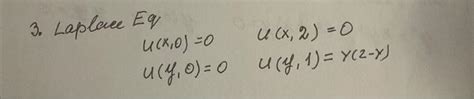 3. Laplace Eq
u(x,0)=0 u(x,2)=0
u(y,0)=0 u(y,1)=y(2-y)